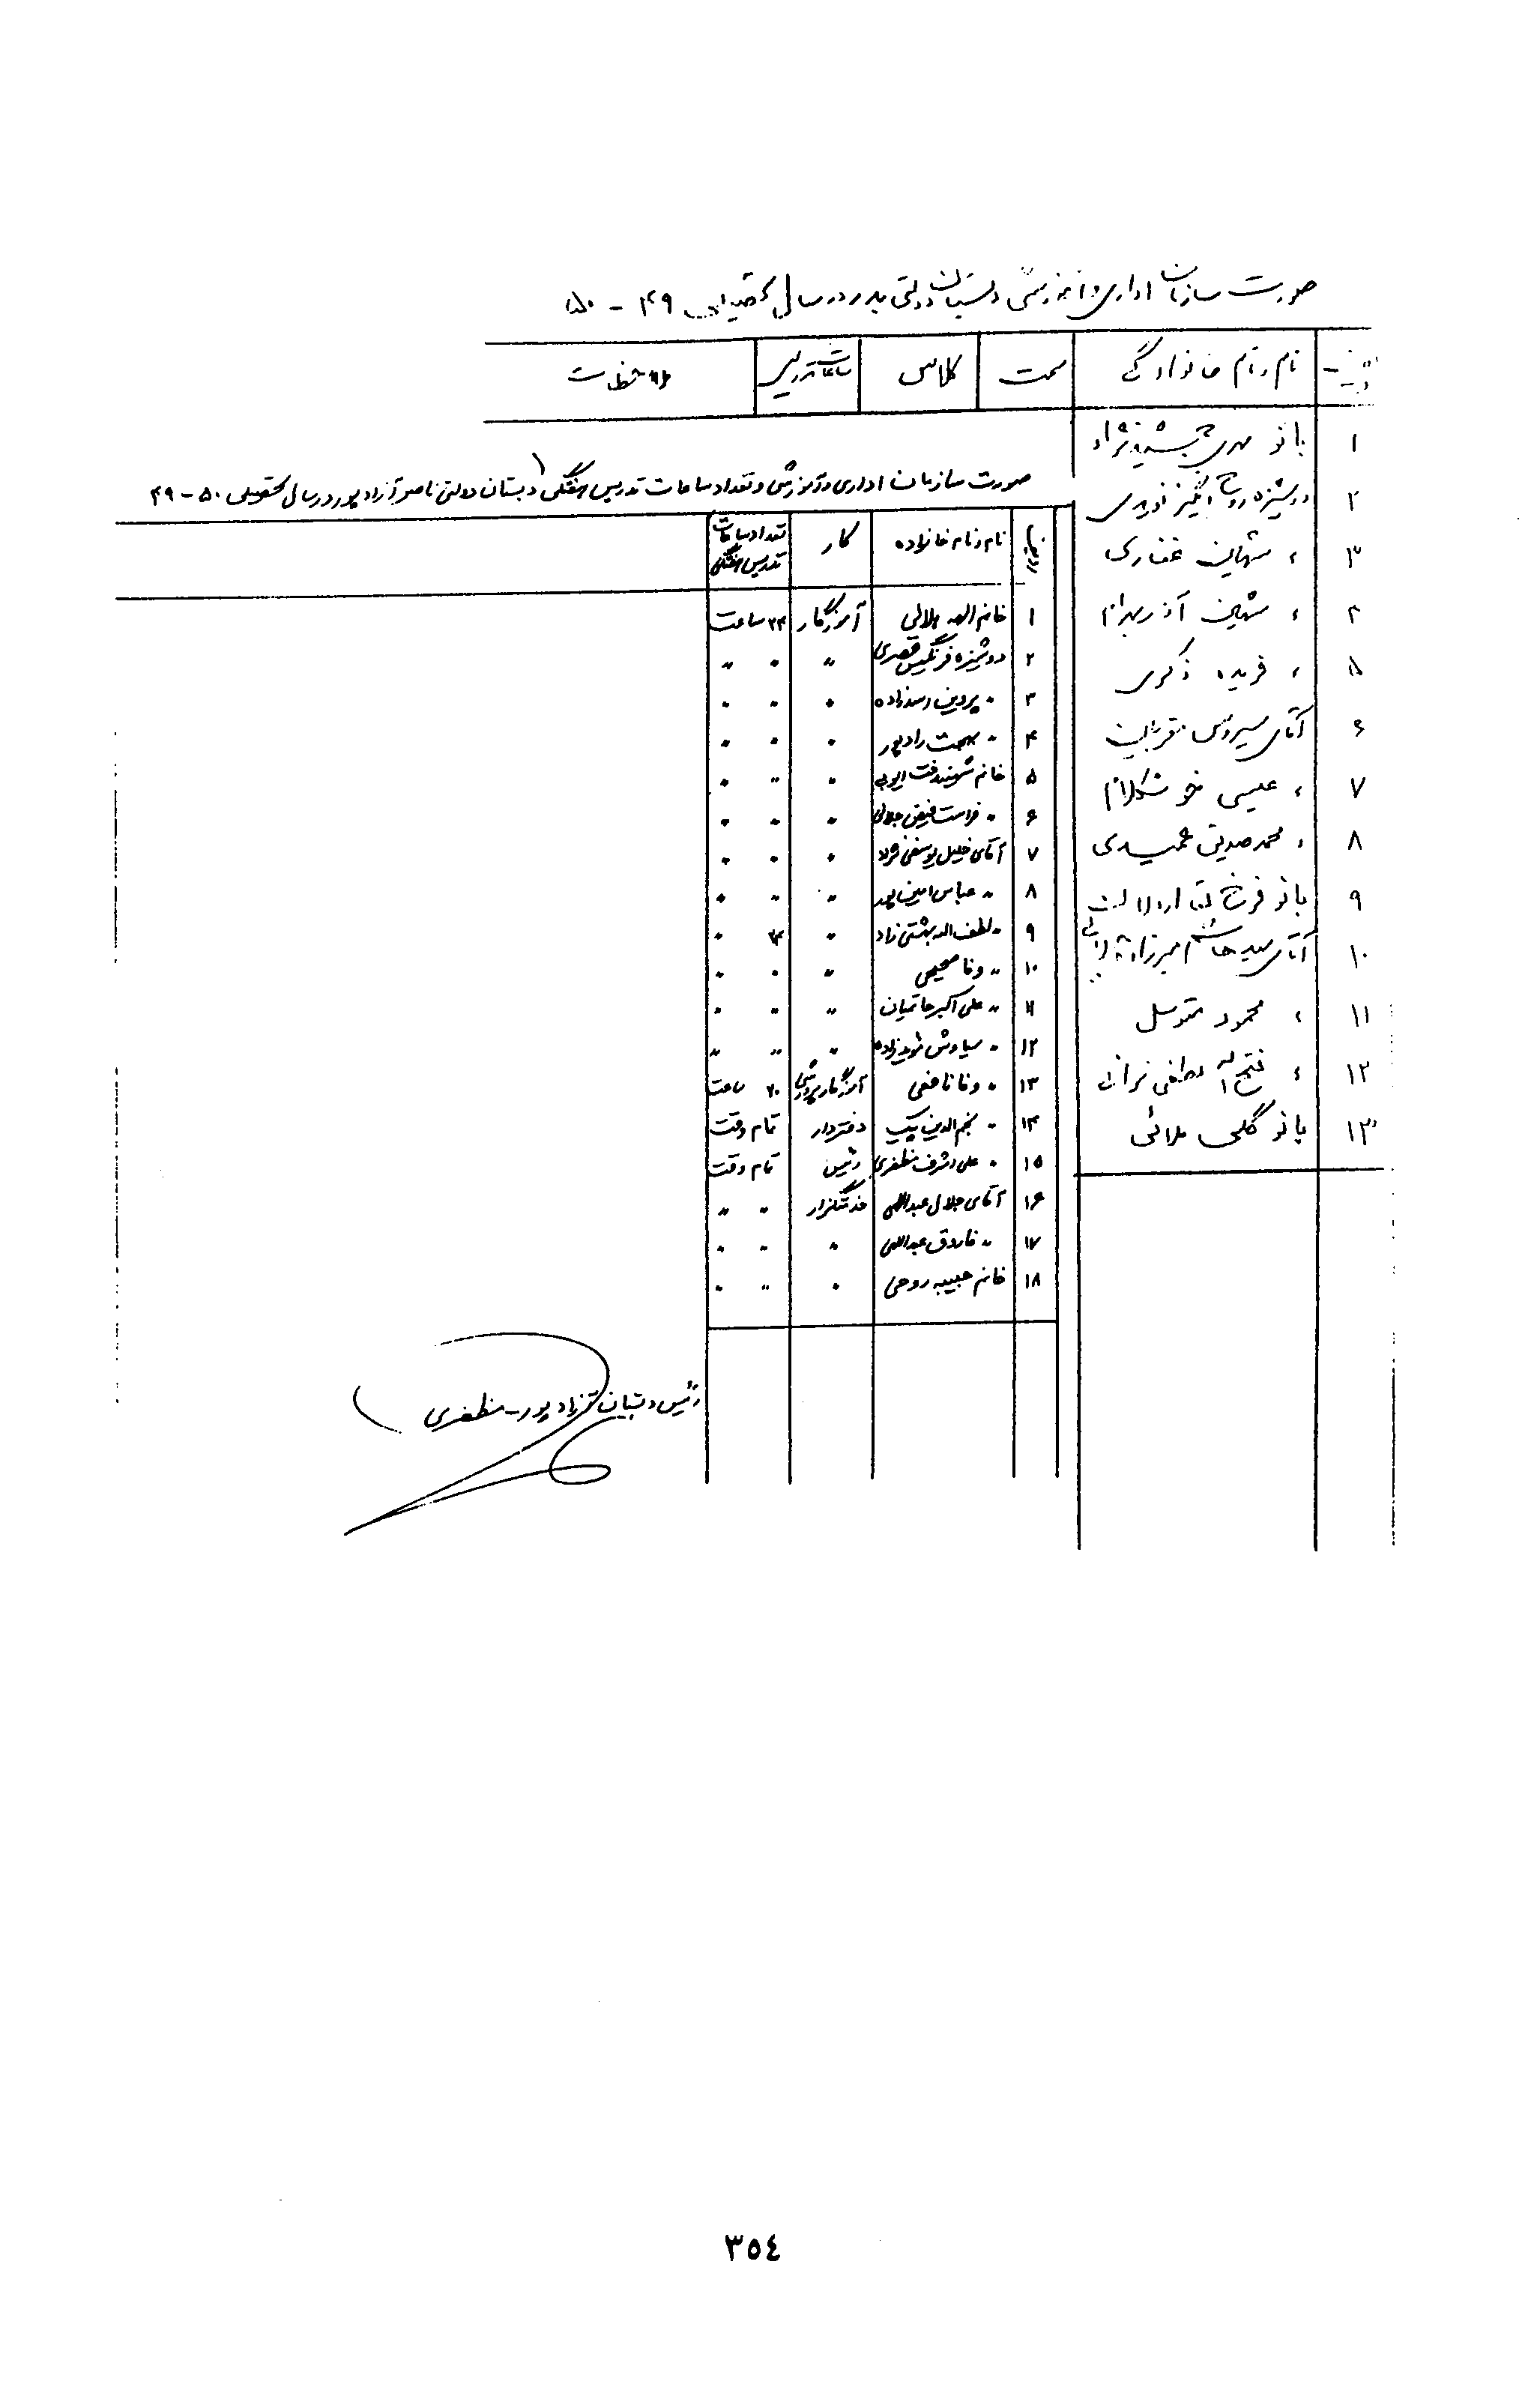 صورت سازمان اداری و آموزشی دبستان دولتی بدر در سال تحصیلی ۴۹ - ۵۰
ردیف نام و نام خانوادگی سمت کلاس ساعات تدریس ملاحظات
۱ بانو مهری
۲ دوشیزه روح انگیز نویدی
۳ ، شهین غفاری
۴ ، شهین آذر بهرام
۵ ، فریده ذکری
۶ آقای سیروس
۷ ، عیسی خوشکلام
۸ ، محمد صدیق حمیدی
۹ بانو فرخ لقا اردلان
۱۰ آقای سید هاشم میرزا
۱۱ ، محمود متوسل
۱۲ ، فتح اله لطفی نژاد
۱۳ بانو گلی ملائی
صورت سازمان اداری و آموزشی و تعداد ساعات تدریس هفتگی دبستان دولتی ناصر آزادپور در سال تحصیلی ۵۰ - ۴۹
ردیف نام و نام خانواده کار تعداد ساعات تدریس هفتگی
۱ خانم الهه هلالی آموزگار ۲۴ ساعت
۲ دوشیزه فرنگیس قصری " " "
۳ " پروین اسدزاده " " "
۴ " بهجت رادپور " " "
۵ خانم شهیندخت ایوبی " " "
۶ " فراست فیض جلالی " " "
۷ آقای خلیل یوسفی نژاد " " "
۸ " عباس امین پور " " "
۹ " لطف اله بهشتی زاد " "
۱۰ " وفا صحیحی " " "
۱۱ " علی اکبر حاتمیان " " "
۱۲ " سیاوش " " "
۱۳ " وفا نافعی آموزگار ورزش ۲۰ ساعت
۱۴ " نجم الدین بیگ دفتردار تمام وقت
۱۵ " علی اشرف مظفری رئیس تمام وقت
۱۶ آقای جلال عبداللهی خدمتگزار " "
۱۷ " فاروق عبداللهی " " "
۱۸ خانم حبیبه روحی " " "
رئیس دبستان آزادپور - مظفری
٣٥٤